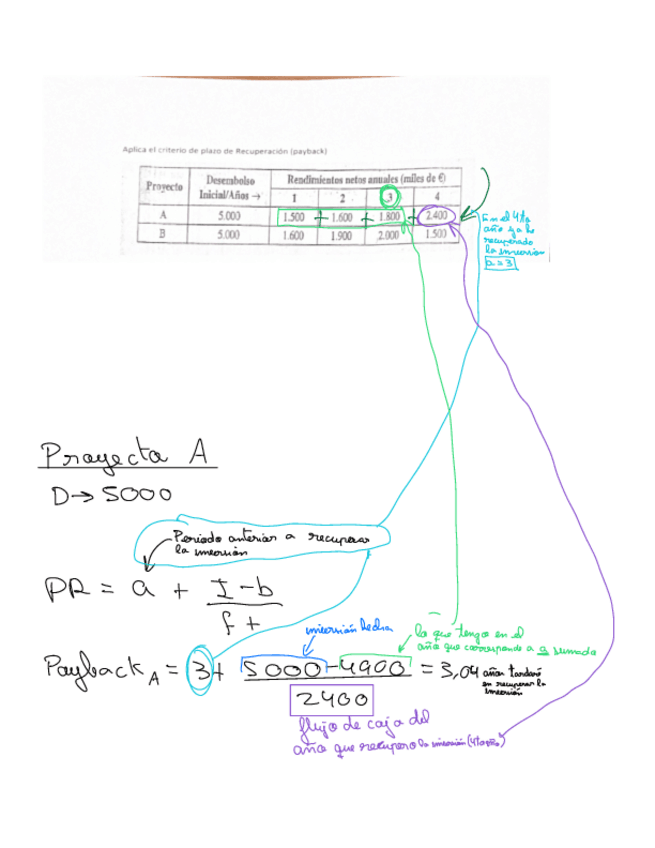 Aplica el criterio de plazo de Recuperación (payback)
Proyecto Desembolso Inicial/Años → Rendimientos netos anuales (miles de €)
1 2 3 4
A 5.000 1.500 + 1.600 + 1.800 + 2.400
B 5.000 1.600 1.900 2.000 1.500
En el 4to
año ya he
recuperado
la inversión
a = 3
Proyecto A
D → 5000
Periodo anterior a recuperar
la inversión
PR = a + I - b
f t
inversión hecha
lo que tengo en el
año que corresponde a a sumado
Payback A = 3 + 5000 - 4900 = 3,04 años tardaré
en recuperar la
inversión
2400
flujo de caja del
año que recupero la inversión (4to año)